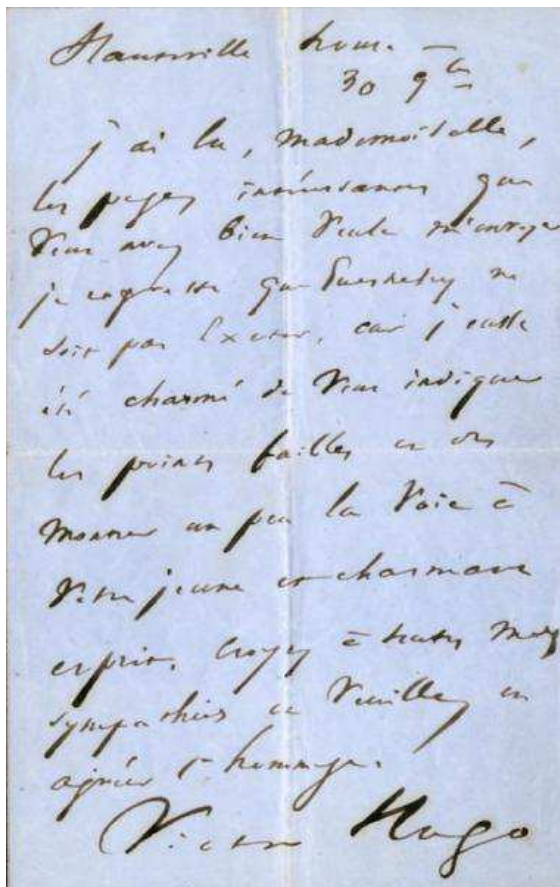 Hauteville house —
30 9bre
j'ai lu, mademoiselle,
les pages intéressantes que
vous avez bien voulu m'envoyer
je regrette que Guernesey ne
soit pas Exeter, car j'eusse
été charmé de vous indiquer
les points faibles et de
montrer un peu la voie à
votre jeune et charmant
esprit. Croyez à toutes mes
sympathies et veuillez en
agréer l'hommage.
Victor Hugo